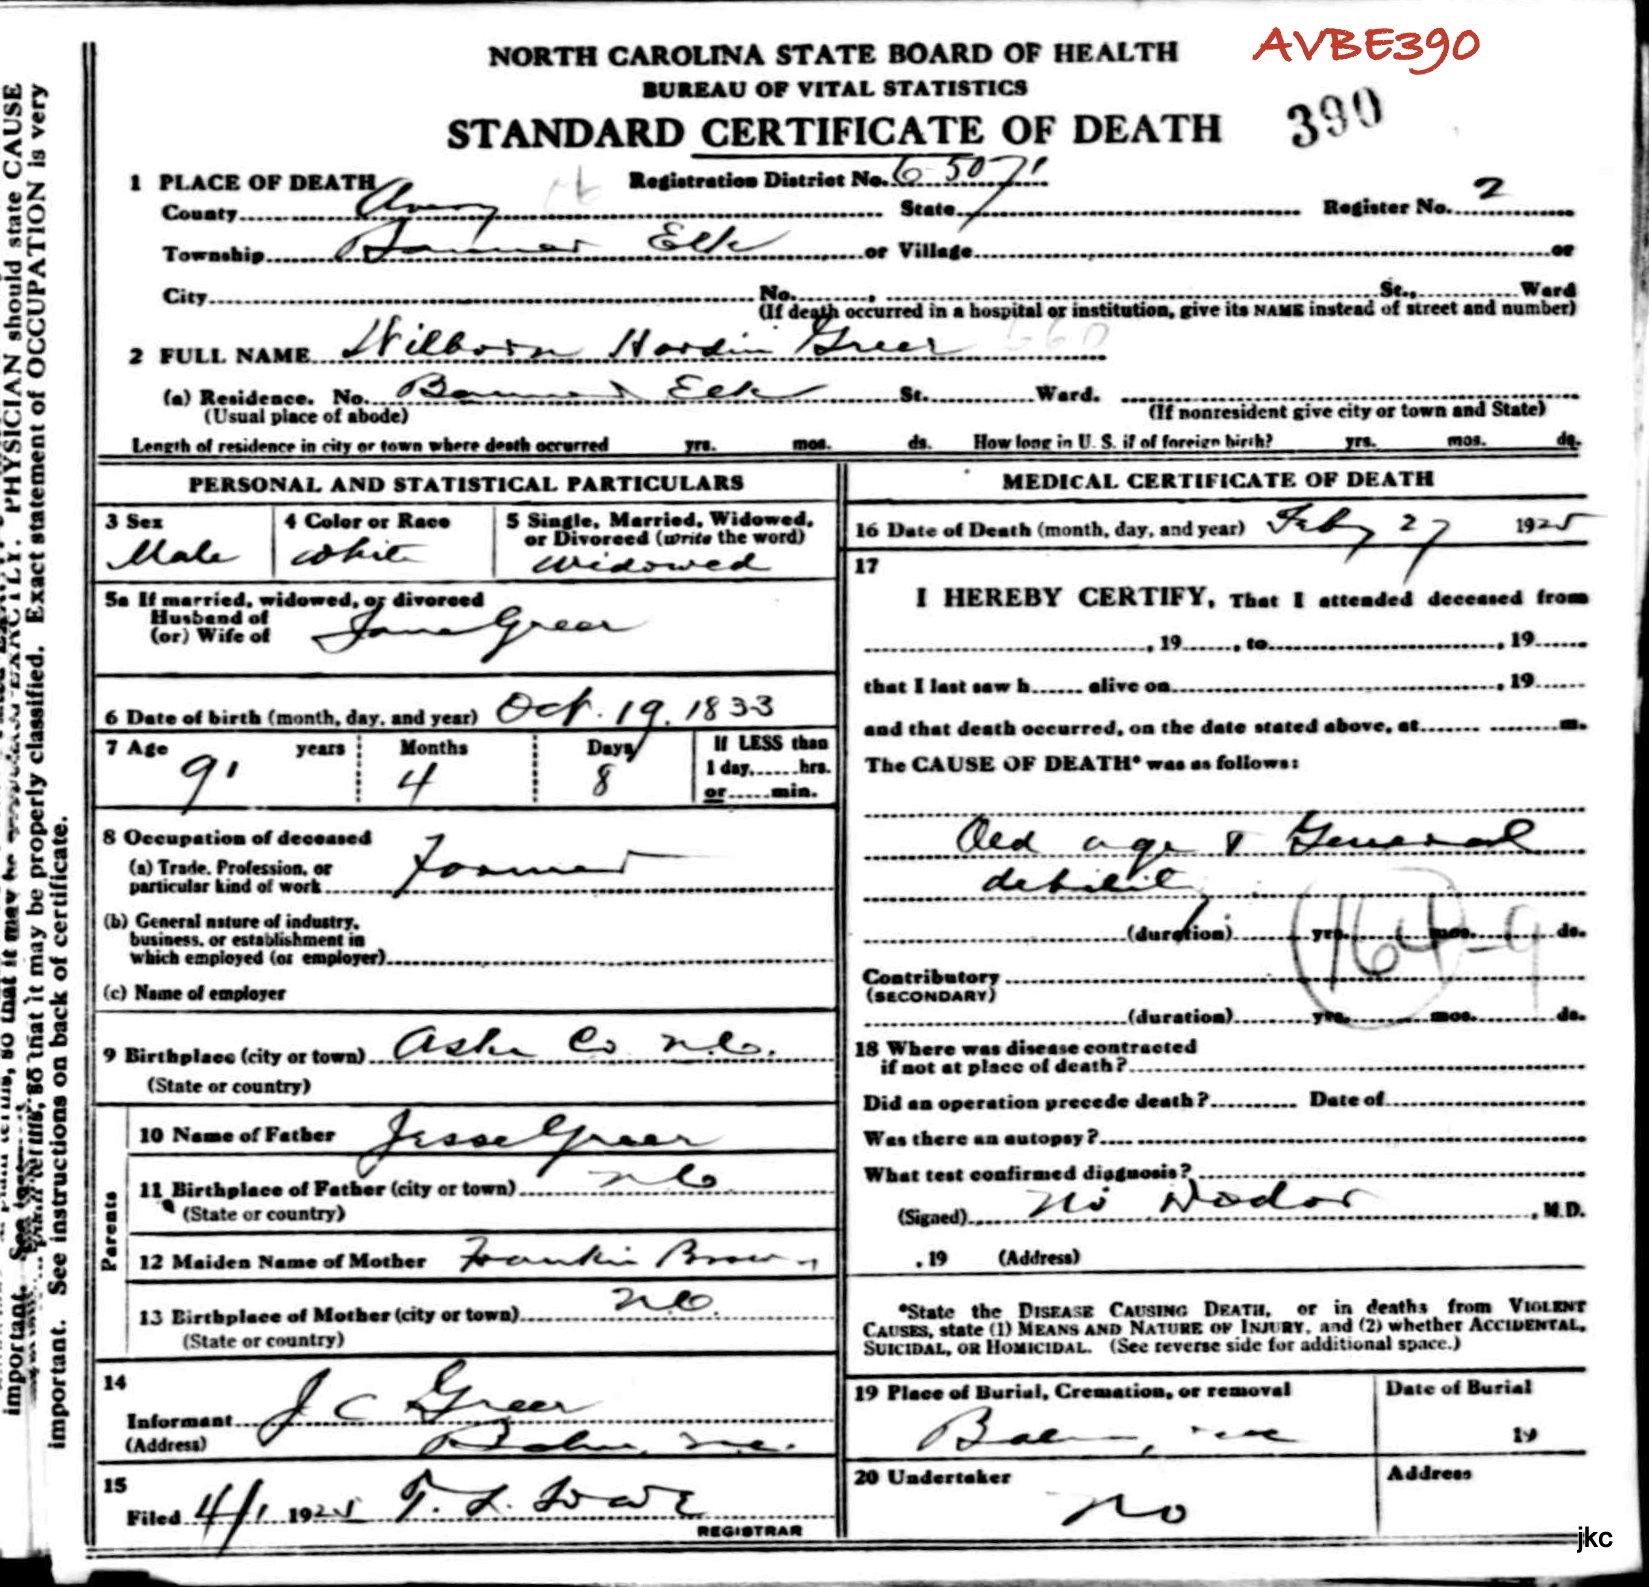 AVBE390
NORTH CAROLINA STATE BOARD OF HEALTH
BUREAU OF VITAL STATISTICS
STANDARD CERTIFICATE OF DEATH
390
1 PLACE OF DEATH Registration District No. 6-5071
County Avery State Register No. 2
Township Banner Elk or Village or
City No. , St., Ward
(If death occurred in a hospital or institution, give its NAME instead of street and number)
2 FULL NAME Wilborn Hardin Greer 660
(a) Residence. No. Banner Elk St. Ward.
(Usual place of abode) (If nonresident give city or town and State)
Length of residence in city or town where death occurred yrs. mos. ds. How long in U. S. if of foreign birth? yrs. mos. ds.
PERSONAL AND STATISTICAL PARTICULARS
3 Sex 4 Color or Race 5 Single, Married, Widowed,
or Divorced (write the word)
Male White Widowed
5a If married, widowed, or divorced
Husband of
(or) Wife of Jane Greer
6 Date of birth (month, day, and year) Oct. 19, 1833
7 Age years Months Days If LESS than
91 4 8 1 day, hrs.
or min.
8 Occupation of deceased
(a) Trade, Profession, or
particular kind of work Farmer
(b) General nature of industry,
business, or establishment in
which employed (or employer)
(c) Name of employer
9 Birthplace (city or town) Ashe Co N.C.
(State or country)
Parents
10 Name of Father Jesse Greer
11 Birthplace of Father (city or town) NC
(State or country)
12 Maiden Name of Mother Frankie Brown
13 Birthplace of Mother (city or town) N.C.
(State or country)
14
Informant J C Greer
(Address) N.C.
15
Filed 4/1 1925 T. L. Lowe
REGISTRAR
MEDICAL CERTIFICATE OF DEATH
16 Date of Death (month, day, and year) Feby 27 1925
17
I HEREBY CERTIFY, That I attended deceased from
, 19 , to , 19
that I last saw h alive on , 19
and that death occurred, on the date stated above, at m.
The CAUSE OF DEATH* was as follows:
Old age & General
debility
(duration) yrs. mos. ds.
164-9
Contributory
(SECONDARY)
(duration) yrs. mos. ds.
18 Where was disease contracted
if not at place of death?
Did an operation precede death? Date of
Was there an autopsy?
What test confirmed diagnosis?
(Signed) No Doctor , M.D.
, 19 (Address)
*State the DISEASE CAUSING DEATH, or in deaths from VIOLENT
CAUSES, state (1) MEANS AND NATURE OF INJURY, and (2) whether ACCIDENTAL,
SUICIDAL, OR HOMICIDAL. (See reverse side for additional space.)
19 Place of Burial, Cremation, or removal Date of Burial
19
20 Undertaker Address
No
PHYSICIAN should state CAUSE
EXACTLY. Exact statement of OCCUPATION is very
so that it may be properly classified.
important. See instructions on back of certificate.
jkc